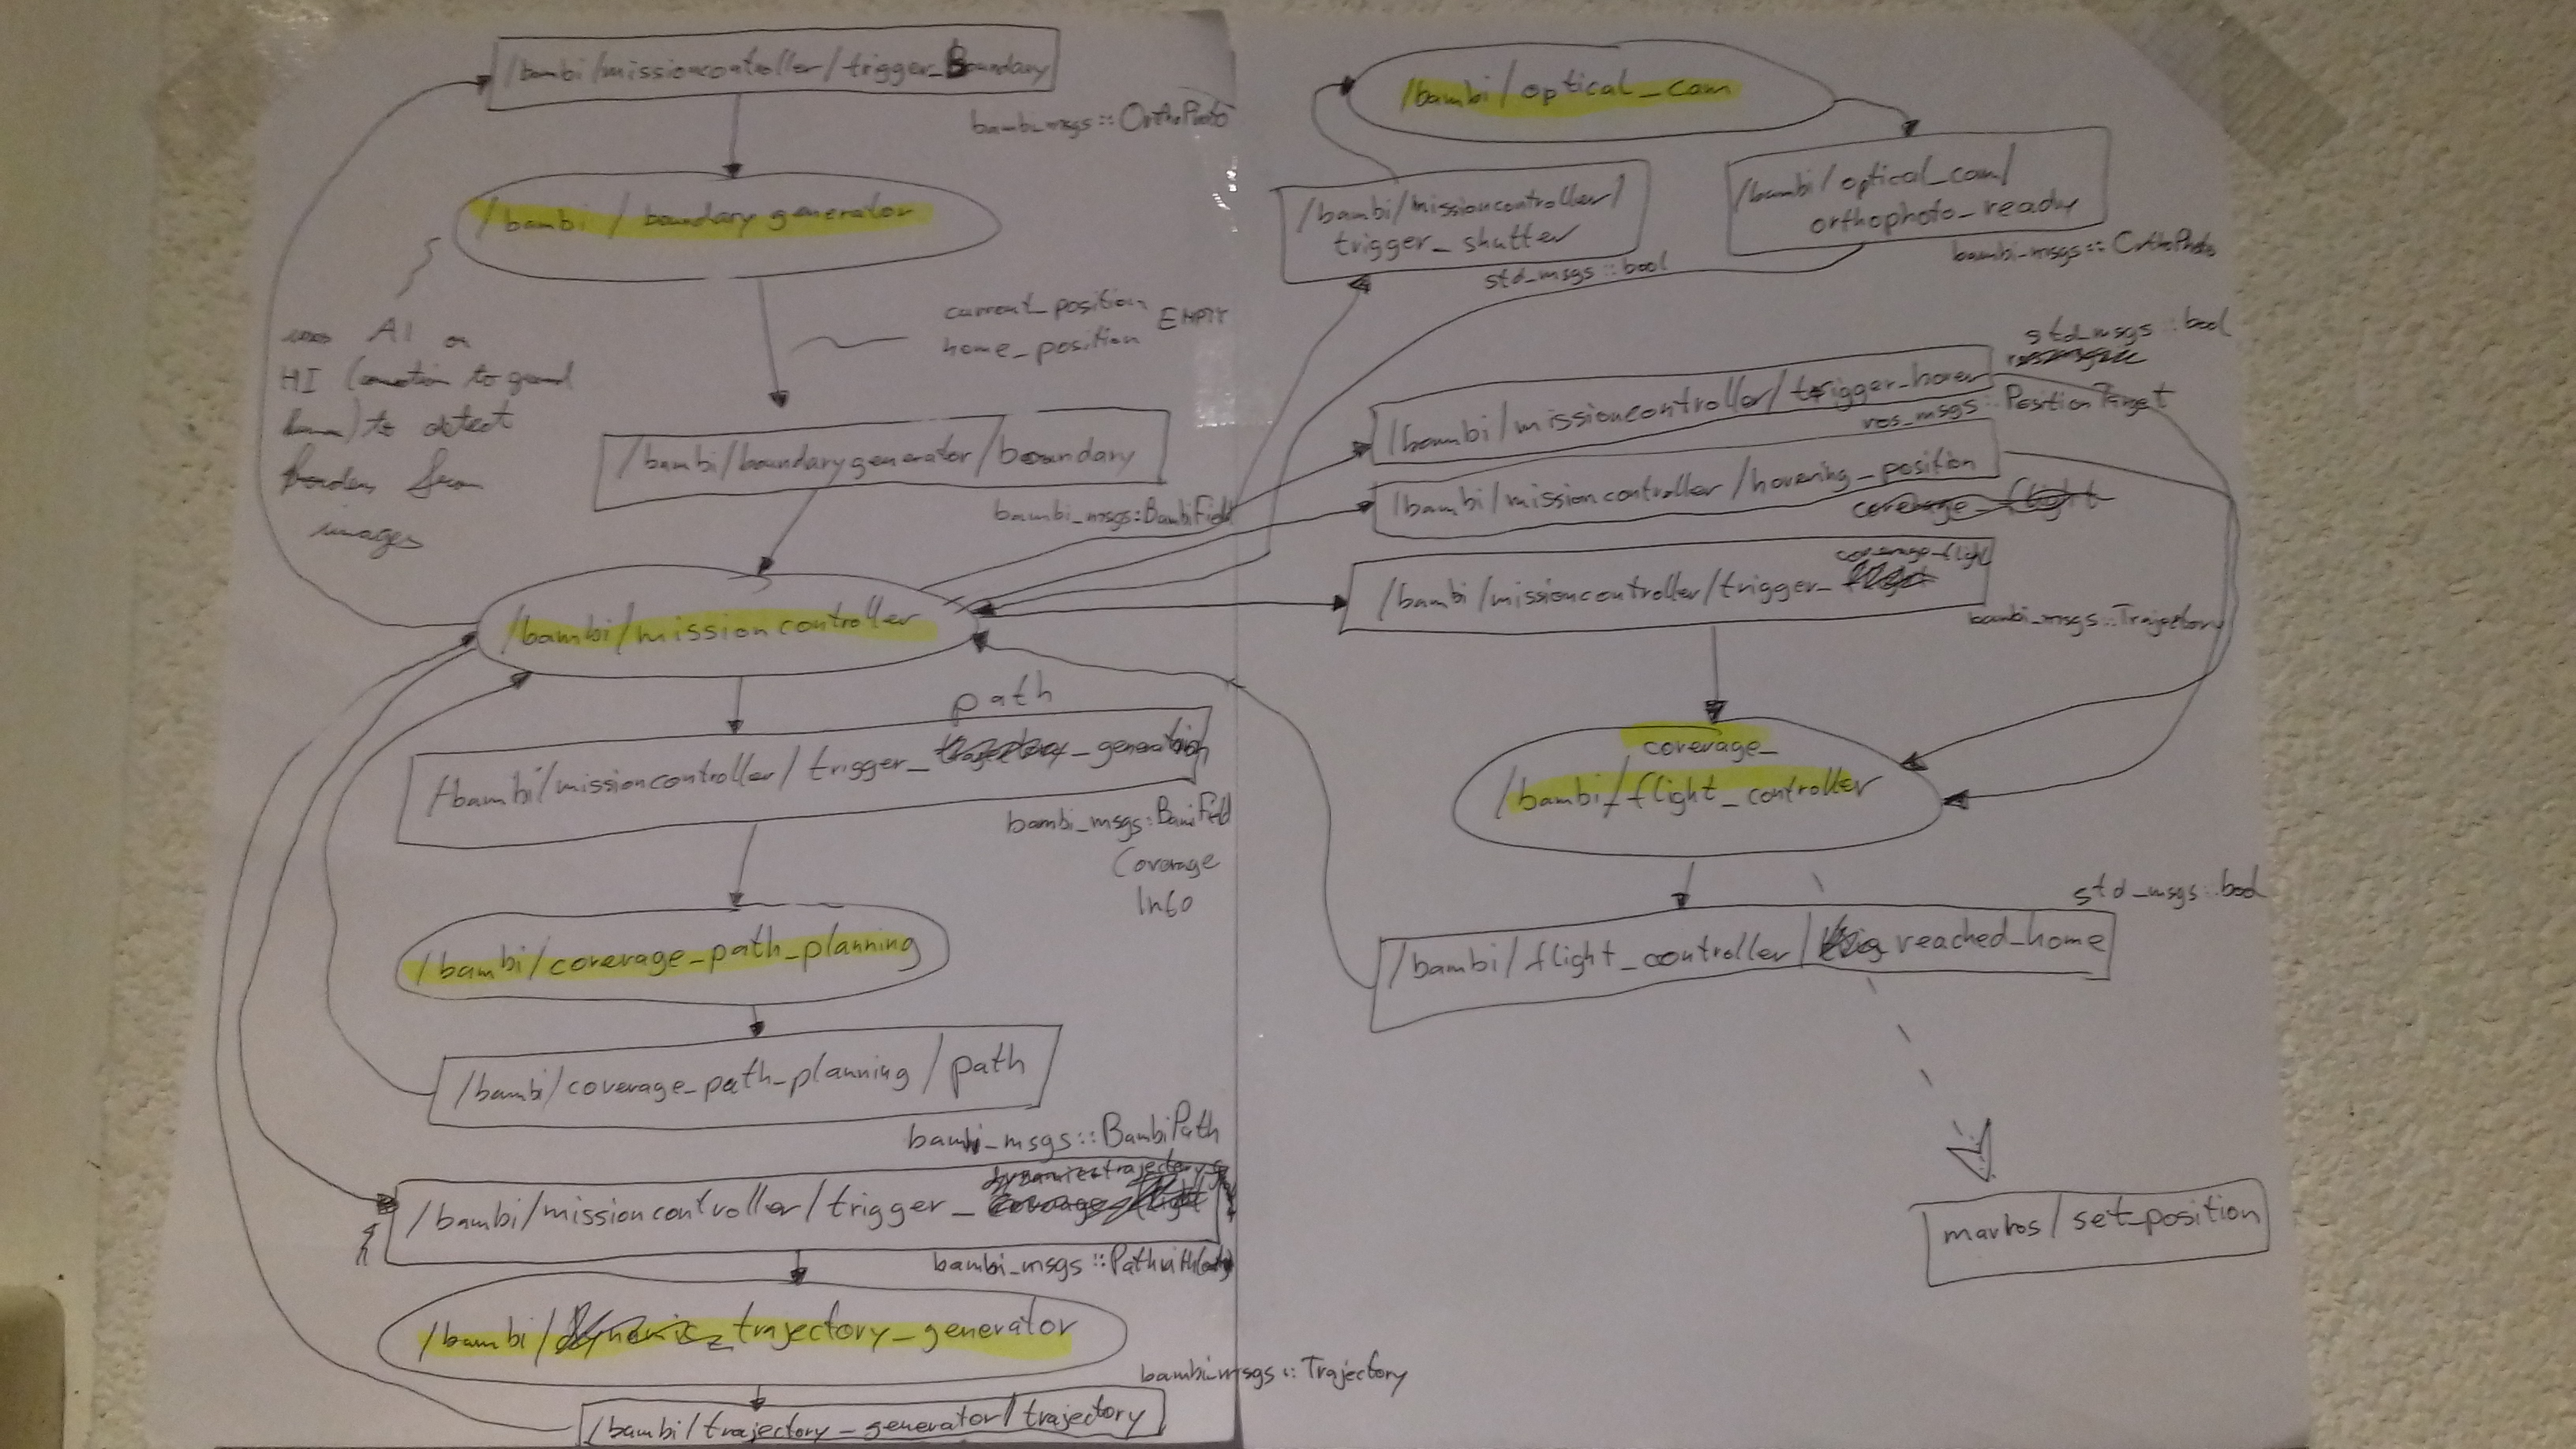 /bambi/missioncontroller/trigger_Boundary
bambi_msgs::OrthoPhoto
/bambi/boundary generator
current_position
home_position EMPTY
AI or
HI (
to detect
from
images
/bambi/boundarygenerator/boundary
bambi_msgs::BambiField
/bambi/missioncontroller
path
/bambi/missioncontroller/trigger_ _generation
bambi_msgs::BamiField
Coverage
Info
/bambi/coverage_path_planning
/bambi/coverage_path_planning/path
bambi_msgs::BambiPath
/bambi/missioncontroller/trigger_
bambi_msgs::
/bambi/dynamic_trajectory_generator
bambi_msgs::Trajectory
/bambi/trajectory_generator/trajectory
/bambi/optical_cam
/bambi/missioncontroller/
trigger_shutter
std_msgs::bool
/bambi/optical_cam/
orthophoto_ready
bambi_msgs::OrthoPhoto
std_msgs::bool
/bambi/missioncontroller/trigger_hover
ros_msgs::PositionTarget
/bambi/missioncontroller/hovering_position
coverage_flight
coverage_flight
/bambi/missioncontroller/trigger_
bambi_msgs::Trajectory
coverage_
/bambi_flight_controller
std_msgs::bool
/bambi/flight_controller/ reached_home
mavros/set_position